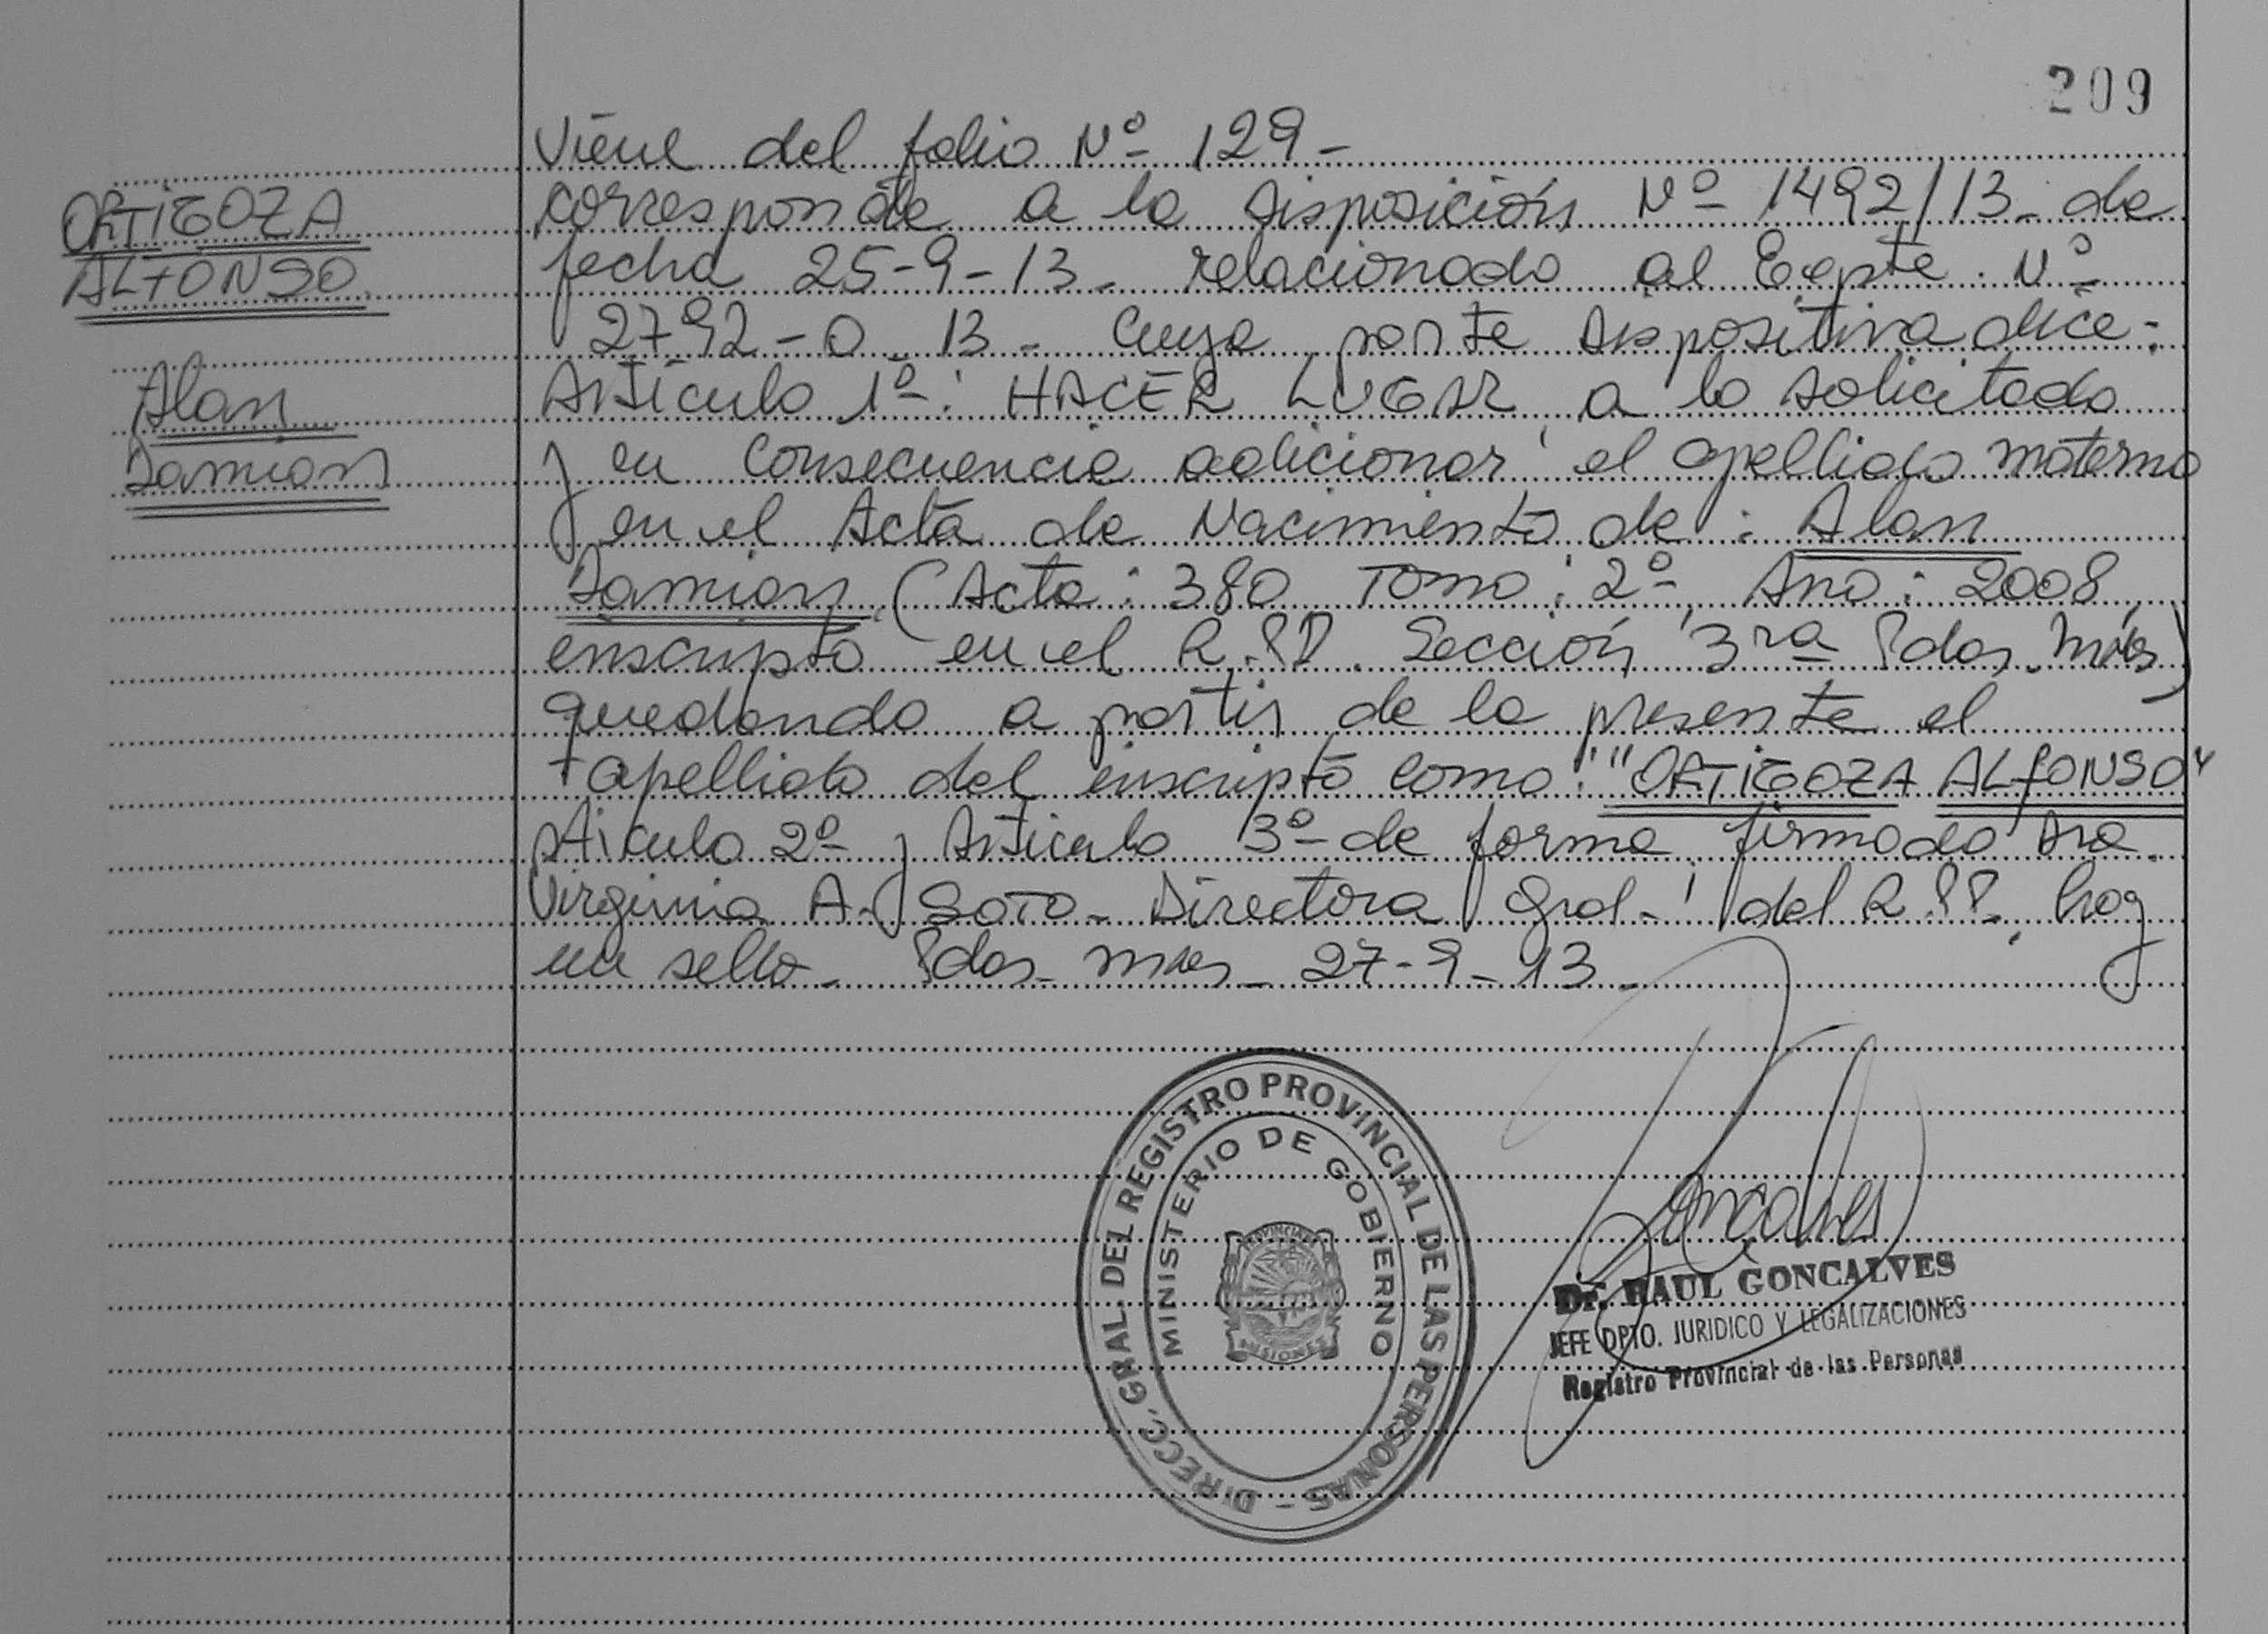 209
Viene del folio Nº 129-
ORTIGOZA
ALFONSO
Alan
Damian
corresponde a la disposición Nº 1492/13- de
fecha 25-9-13- relacionado al Expte. Nº
2792-O-13- Cuya parte dispositiva dice:
Artículo 1º: HACER LUGAR a lo solicitado
y en consecuencia adicionar el apellido materno
en el Acta de Nacimiento de: Alan
Damian (Acta: 380 Tomo: 2º Año: 2008,
inscripto en el R.P.P. Sección 3ra Pdas. Mnes)
quedando a partir de la presente el
apellido del inscripto como: "ORTIGOZA ALFONSO"
Articulo 2º y Articulo 3º de forma, firmado Dra.
Virginia A. SOTO- Directora Gral- del R.P.P. hay
un sello- Pdas- Mnes- 27-9-13
DIRECC. GRAL. DEL REGISTRO PROVINCIAL DE LAS PERSONAS -
MINISTERIO DE GOBIERNO
PROVINCIA
MISIONES
Gonçalves
Dr. RAUL GONCALVES
JEFE DPTO. JURIDICO Y LEGALIZACIONES
Registro Provincial de las Personas